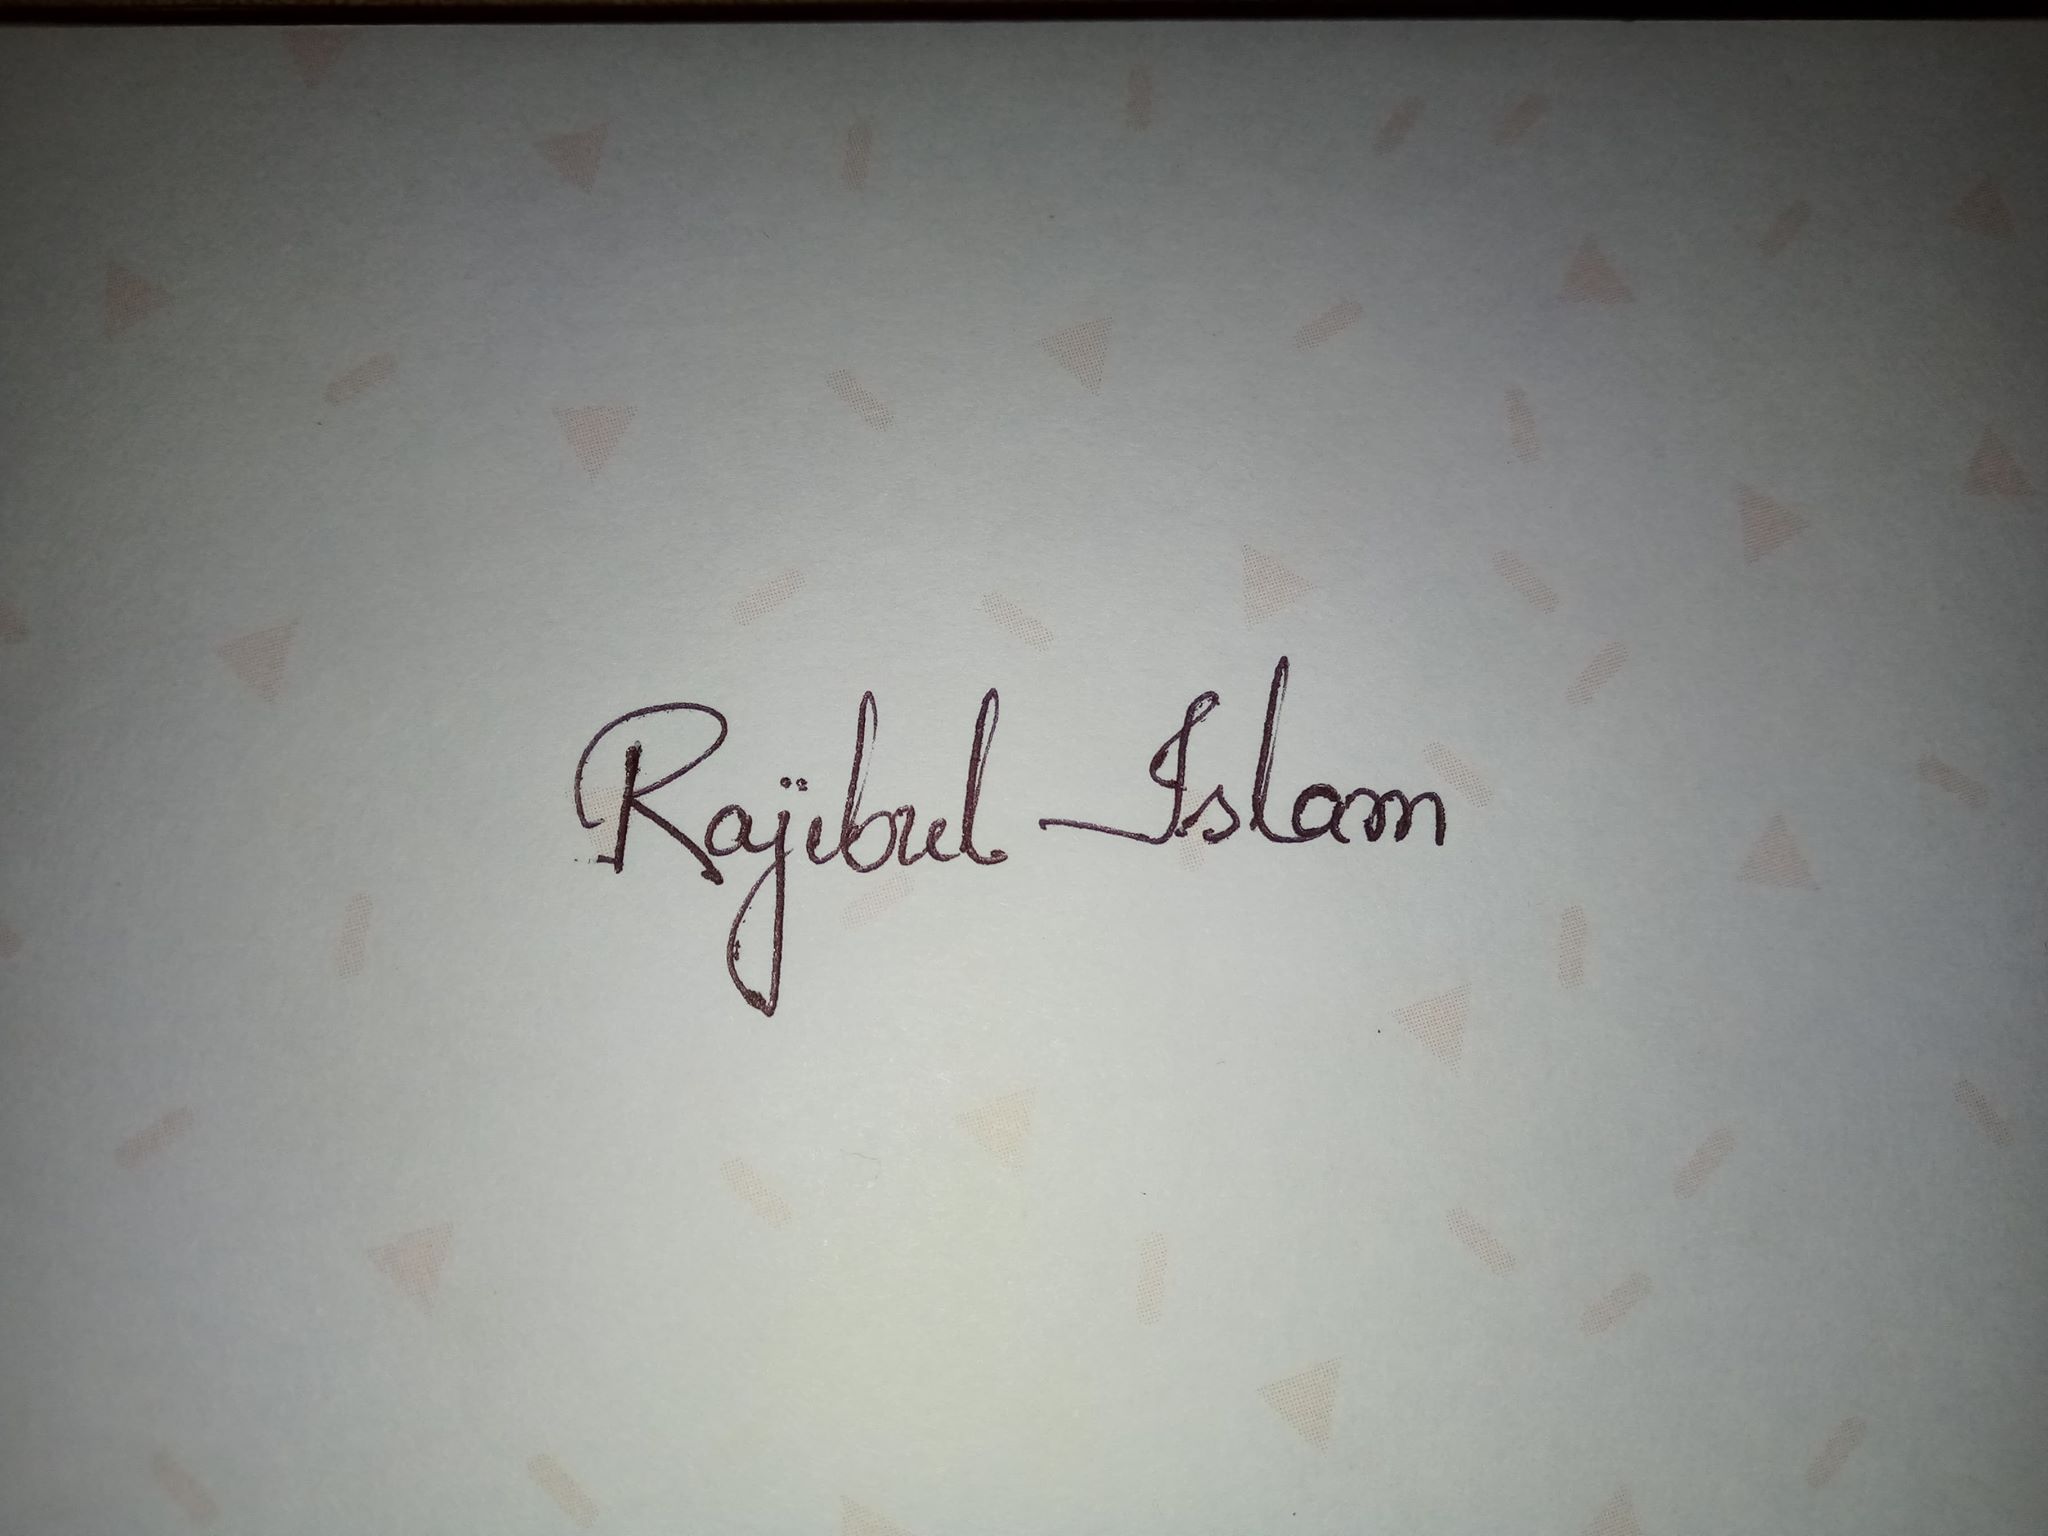 Rajibul Islam